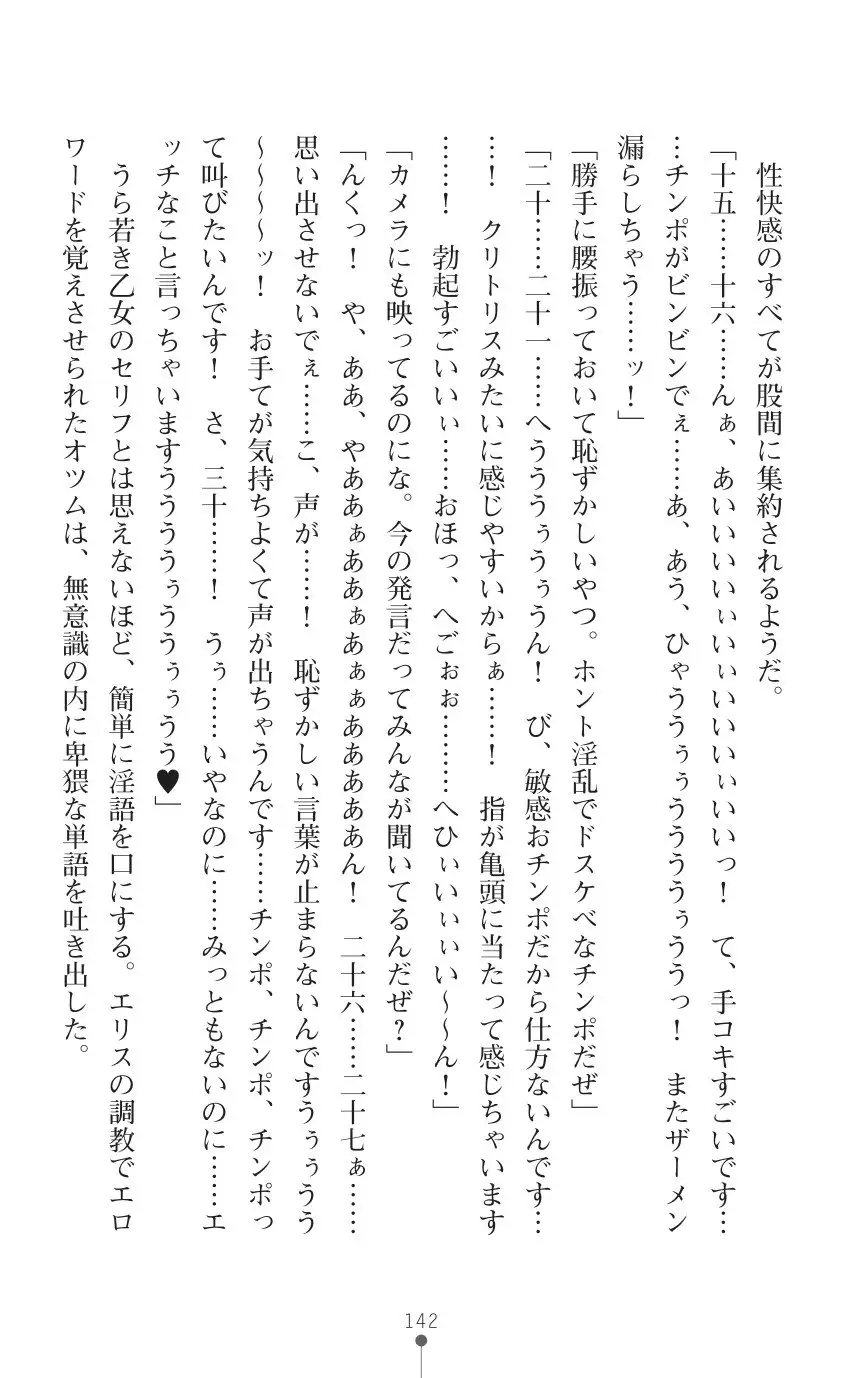 性快感のすべてが股間に集約されるようだ。
「十五……十六……んぁ、あいいいいぃいぃいいいぃいいっ！　て、手コキすごいです…
…チンポがビンビンでぇ……あ、あう、ひゃううぅぅうううぅううっ！　またザーメン
漏らしちゃう……ッ！」
「勝手に腰振っておいて恥ずかしいやつ。ホント淫乱でドスケベなチンポだぜ」
「二十……二十一……へうううぅうぅうん！　び、敏感おチンポだから仕方ないんです…
…！　クリトリスみたいに感じやすいからぁ……！　指が亀頭に当たって感じちゃいます
……！　勃起すごいいぃ……おほっ、へごぉぉ………へひぃいぃぃい～～ん！」
「カメラにも映ってるのにな。今の発言だってみんなが聞いてるんだぜ？」
「んくっ！　や、ああ、やああぁああぁあぁぁあああああん！　二十六……二十七ぁ……
思い出させないでぇ……こ、声が……！　恥ずかしい言葉が止まらないんですうぅぅうう
～～～～ッ！　お手てが気持ちよくて声が出ちゃうんです……チンポ、チンポ、チンポっ
て叫びたいんです！　さ、三十……！　うぅ……いやなのに……みっともないのに……エ
ッチなこと言っちゃいますうううぅううぅぅうう♥」
うら若き乙女のセリフとは思えないほど、簡単に淫語を口にする。エリスの調教でエロ
ワードを覚えさせられたオツムは、無意識の内に卑猥な単語を吐き出した。
142